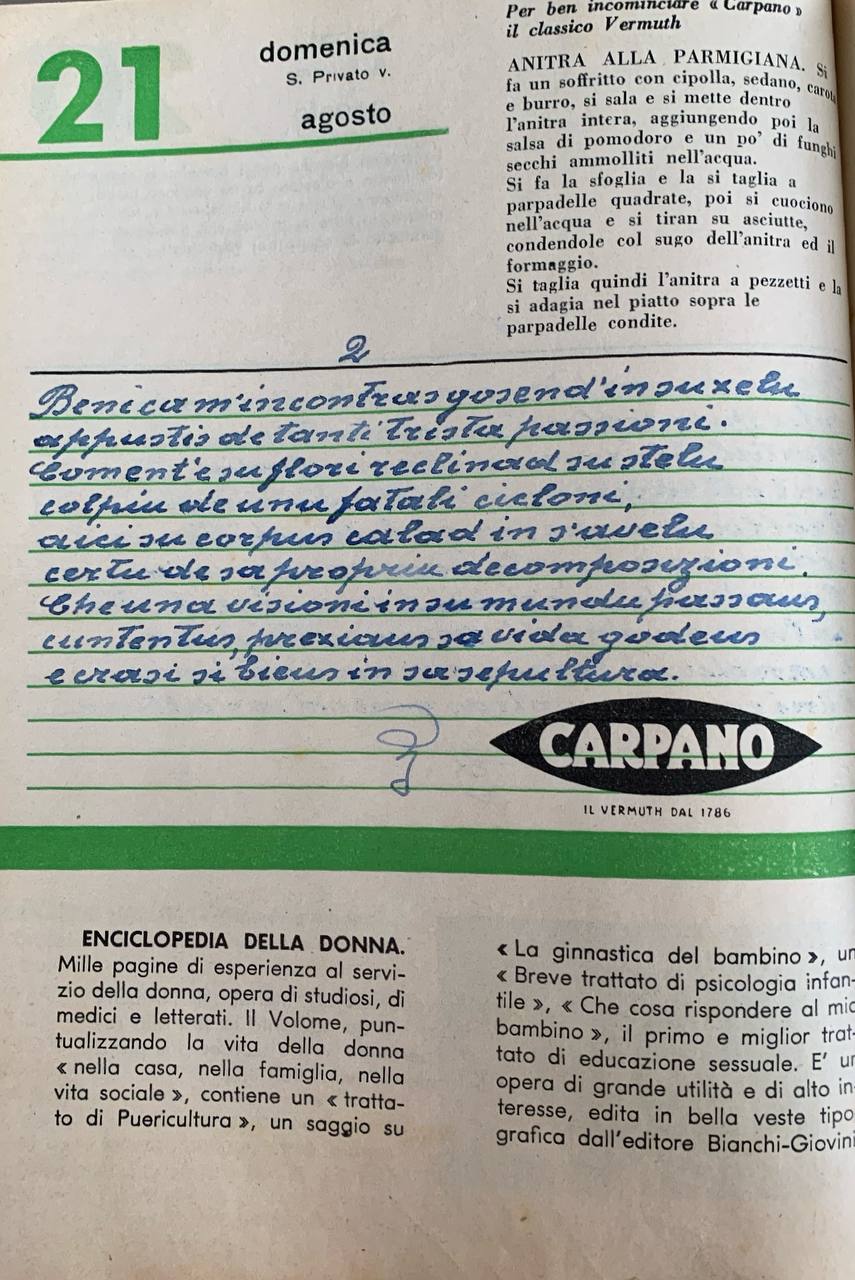 21
domenica
S. Privato v.
agosto
Per ben incominciare « Carpano »
il classico Vermuth
ANITRA ALLA PARMIGIANA. Si
fa un soffritto con cipolla, sedano, carota
e burro, si sala e si mette dentro
l'anitra intera, aggiungendo poi la
salsa di pomodoro e un po' di funghi
secchi ammolliti nell'acqua.
Si fa la sfoglia e la si taglia a
parpadelle quadrate, poi si cuociono
nell'acqua e si tiran su asciutte,
condendole col sugo dell'anitra ed il
formaggio.
Si taglia quindi l'anitra a pezzetti e la
si adagia nel piatto sopra le
parpadelle condite.
2
Beni ca m'incontras gosend'in su xelu
appustis de tanti trista passioni.
Coment'e su flori reclinad su stelu
colpiu de unu fatali cicloni,
aici su corpus calad in s'avelu
certu de sa propriu decomposizioni.
Che una visioni in su mundu passaus,
cuntentus, prexiaus sa vida godeus
e crasi si bieus in sa sepultura.
CARPANO
IL VERMUTH DAL 1786
ENCICLOPEDIA DELLA DONNA.
Mille pagine di esperienza al servi-
zio della donna, opera di studiosi, di
medici e letterati. Il Volume, pun-
tualizzando la vita della donna
« nella casa, nella famiglia, nella
vita sociale », contiene un « tratta-
to di Puericultura », un saggio su
« La ginnastica del bambino », un
« Breve trattato di psicologia infan-
tile », « Che cosa rispondere al mio
bambino », il primo e miglior trat-
tato di educazione sessuale. E' un
opera di grande utilità e di alto in-
teresse, edita in bella veste tipo
grafica dall'editore Bianchi-Giovini